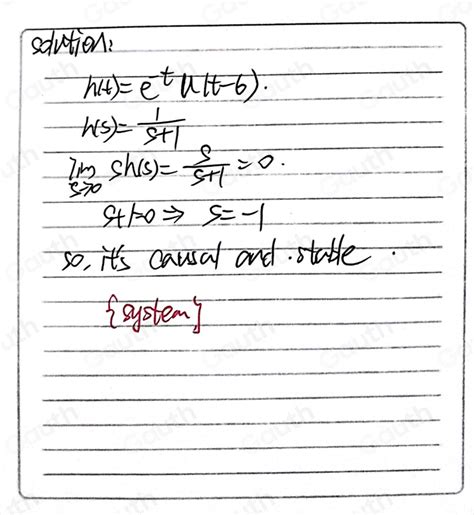 solution:
h(t)=e^t u(t-6).
h(s)=1/(s+1)
lim s→0 sh(s)=s/(s+1)=0.
s+1=0⇒ s=-1
so, it's causal and .stable .
{system}